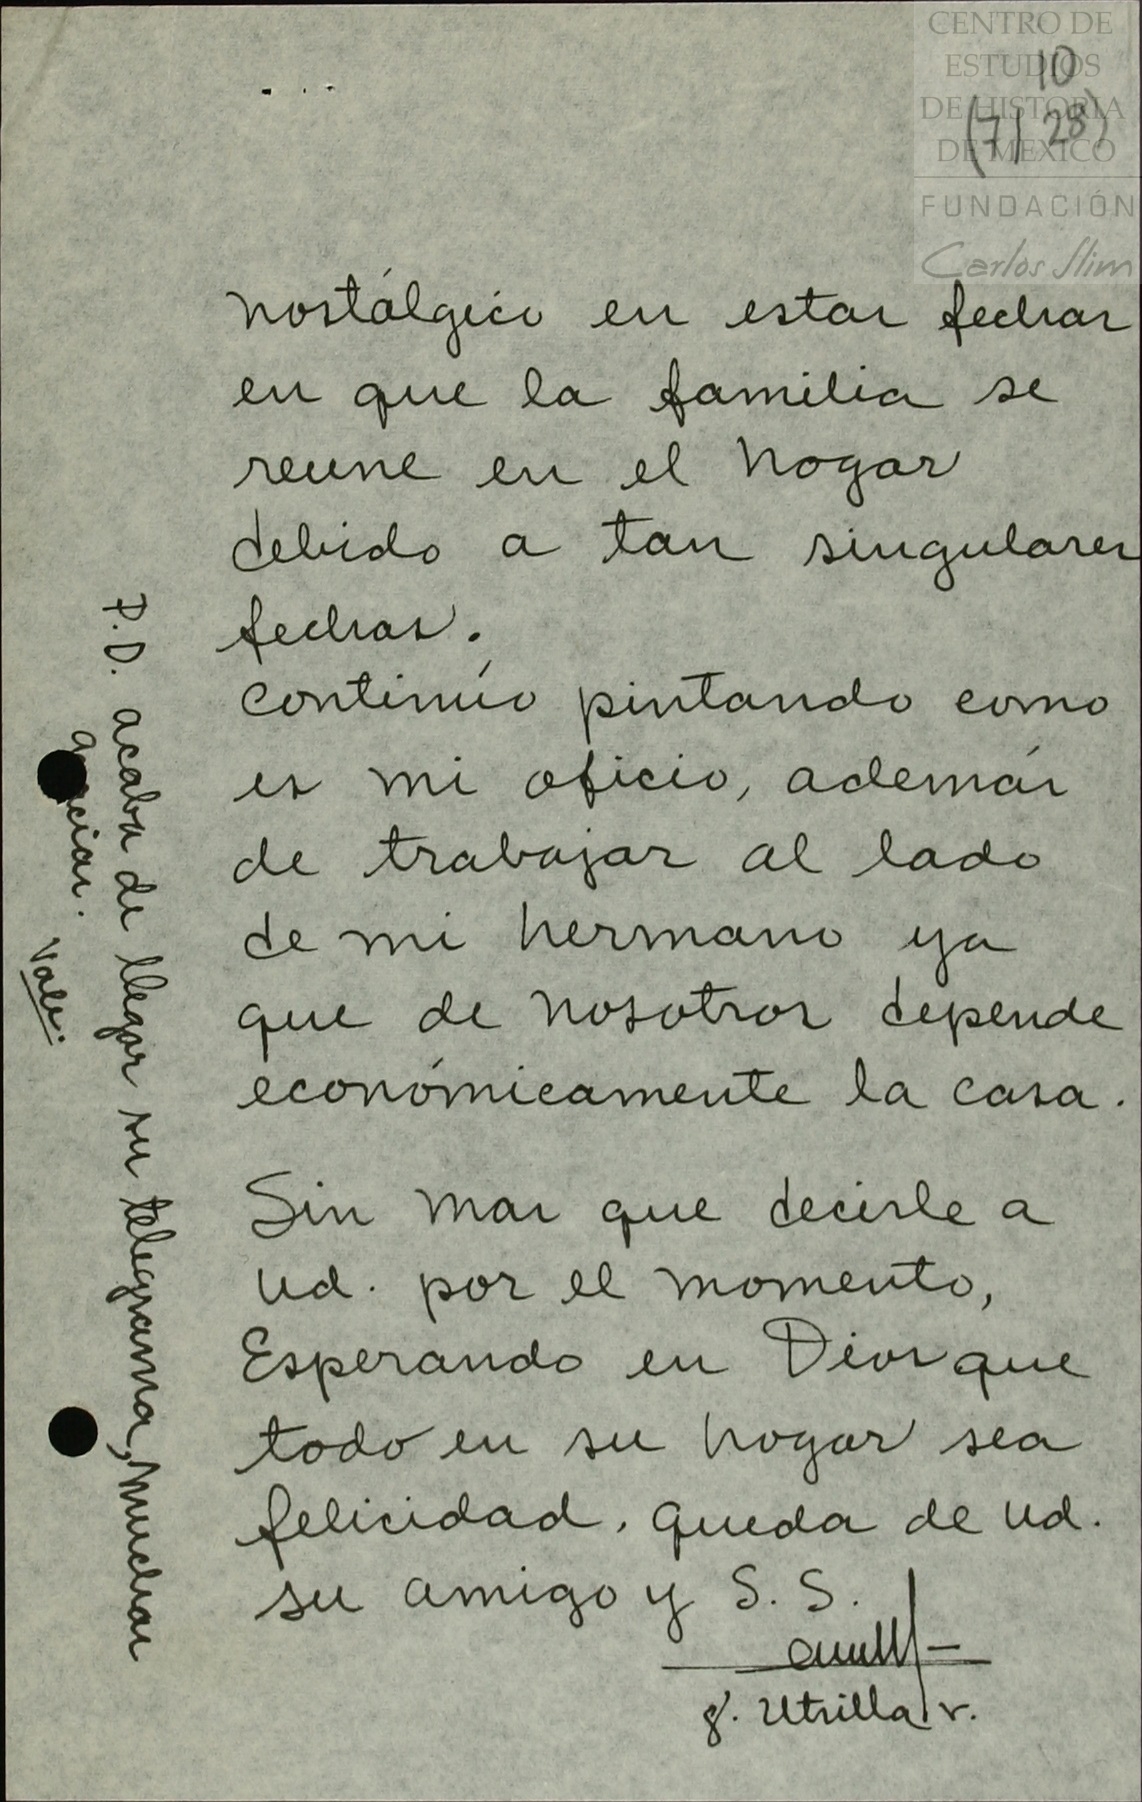 CENTRO DE
ESTUDIOS
DE HISTORIA
DE MEXICO
FUNDACIÓN
Carlos Slim
10
(7/28)
nostálgico en estas fechas
en que la familia se
reune en el hogar
debido a tan singulares
fechas.
continúo pintando como
es mi oficio, además
de trabajar al lado
de mi hermano ya
que de nosotros depende
económicamente la casa.
Sin mas que decirle a
Ud. por el momento,
Esperando en Dios que
todo en su hogar sea
felicidad, queda de Ud.
su amigo y S. S.
g. Utrilla v.
P.D. acaba de llegar su telegrama, muchas
gracias.
Vale.